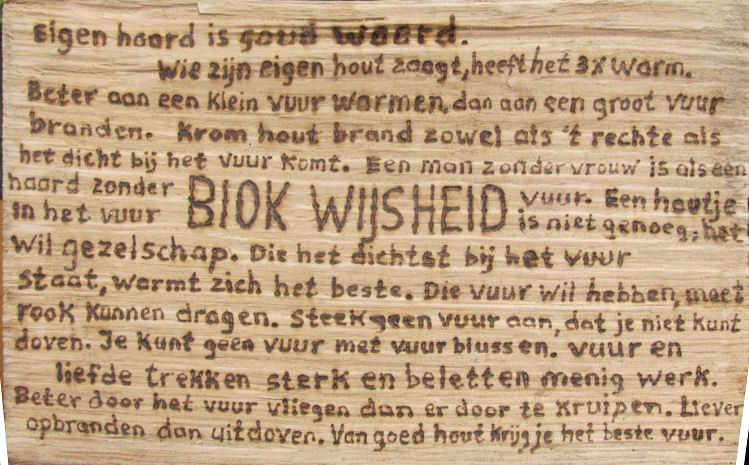 Eigen haard is goud waard.
Wie zijn eigen hout zaagt, heeft het 3x warm.
Beter aan een klein vuur warmen, dan aan een groot vuur
branden. Krom hout brand zowel als 't rechte als
het dicht bij het vuur komt. Een man zonder vrouw is als een
haard zonder vuur. Een houtje
in het vuur is niet genoeg, het
BlOK WIJSHEID
wil gezelschap. Die het dichtst bij het vuur
staat, warmt zich het beste. Die vuur wil hebben, moet
rook kunnen dragen. Steek geen vuur aan, dat je niet kunt
doven. Je kunt geen vuur met vuur blussen. vuur en
liefde trekken sterk en beletten menig werk.
Beter door het vuur vliegen dan er door te kruipen. Liever
opbranden dan uitdoven. Van goed hout krijg je het beste vuur.